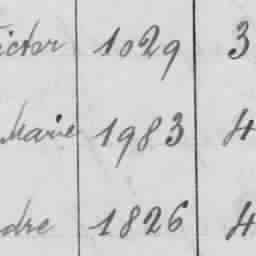 ictor 1029 3
Marie 1983 4
dre 1826 4